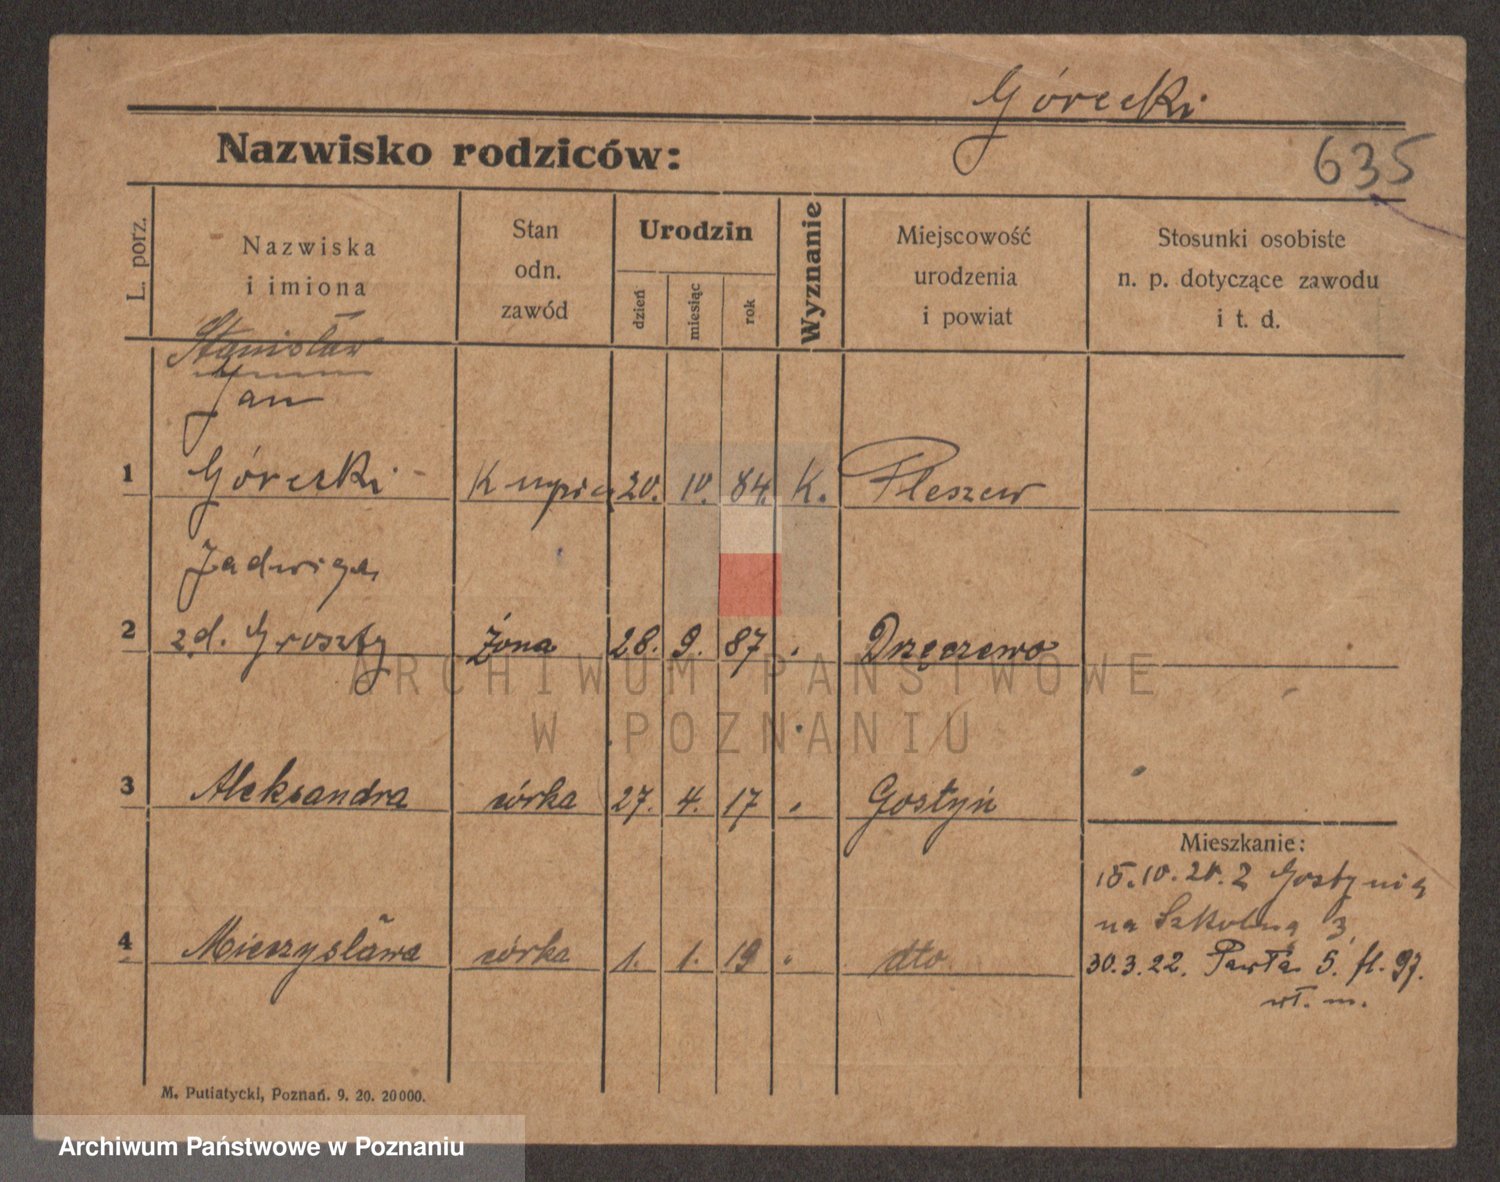 Górecki
Nazwisko rodziców:
635
L. porz.
Nazwiska
i imiona
Stan
odn.
zawód
Urodzin
dzień
miesiąc
rok
Wyznanie
Miejscowość
urodzenia
i powiat
Stosunki osobiste
n. p. dotyczące zawodu
i t. d.
Stanisław
Jan
1 Górecki Kupiec 20. IV. 84. K. Pleszew
Jadwiga
2 zd. Groszty Żona 28. 9. 87 Drzęczewo
3 Aleksandra córka 27. 4. 17 Gostyń
Mieszkanie:
15.10.20. z Gostynia
na Szkolną 3
4 Mieczysława córka 1. 1. 19 dto
30.3.22. Pawła 5. fl. 97.
wł. m.
M. Putiatycki, Poznań. 9. 20. 20000.
ARCHIWUM PAŃSTWOWE
W POZNANIU
Archiwum Państwowe w Poznaniu